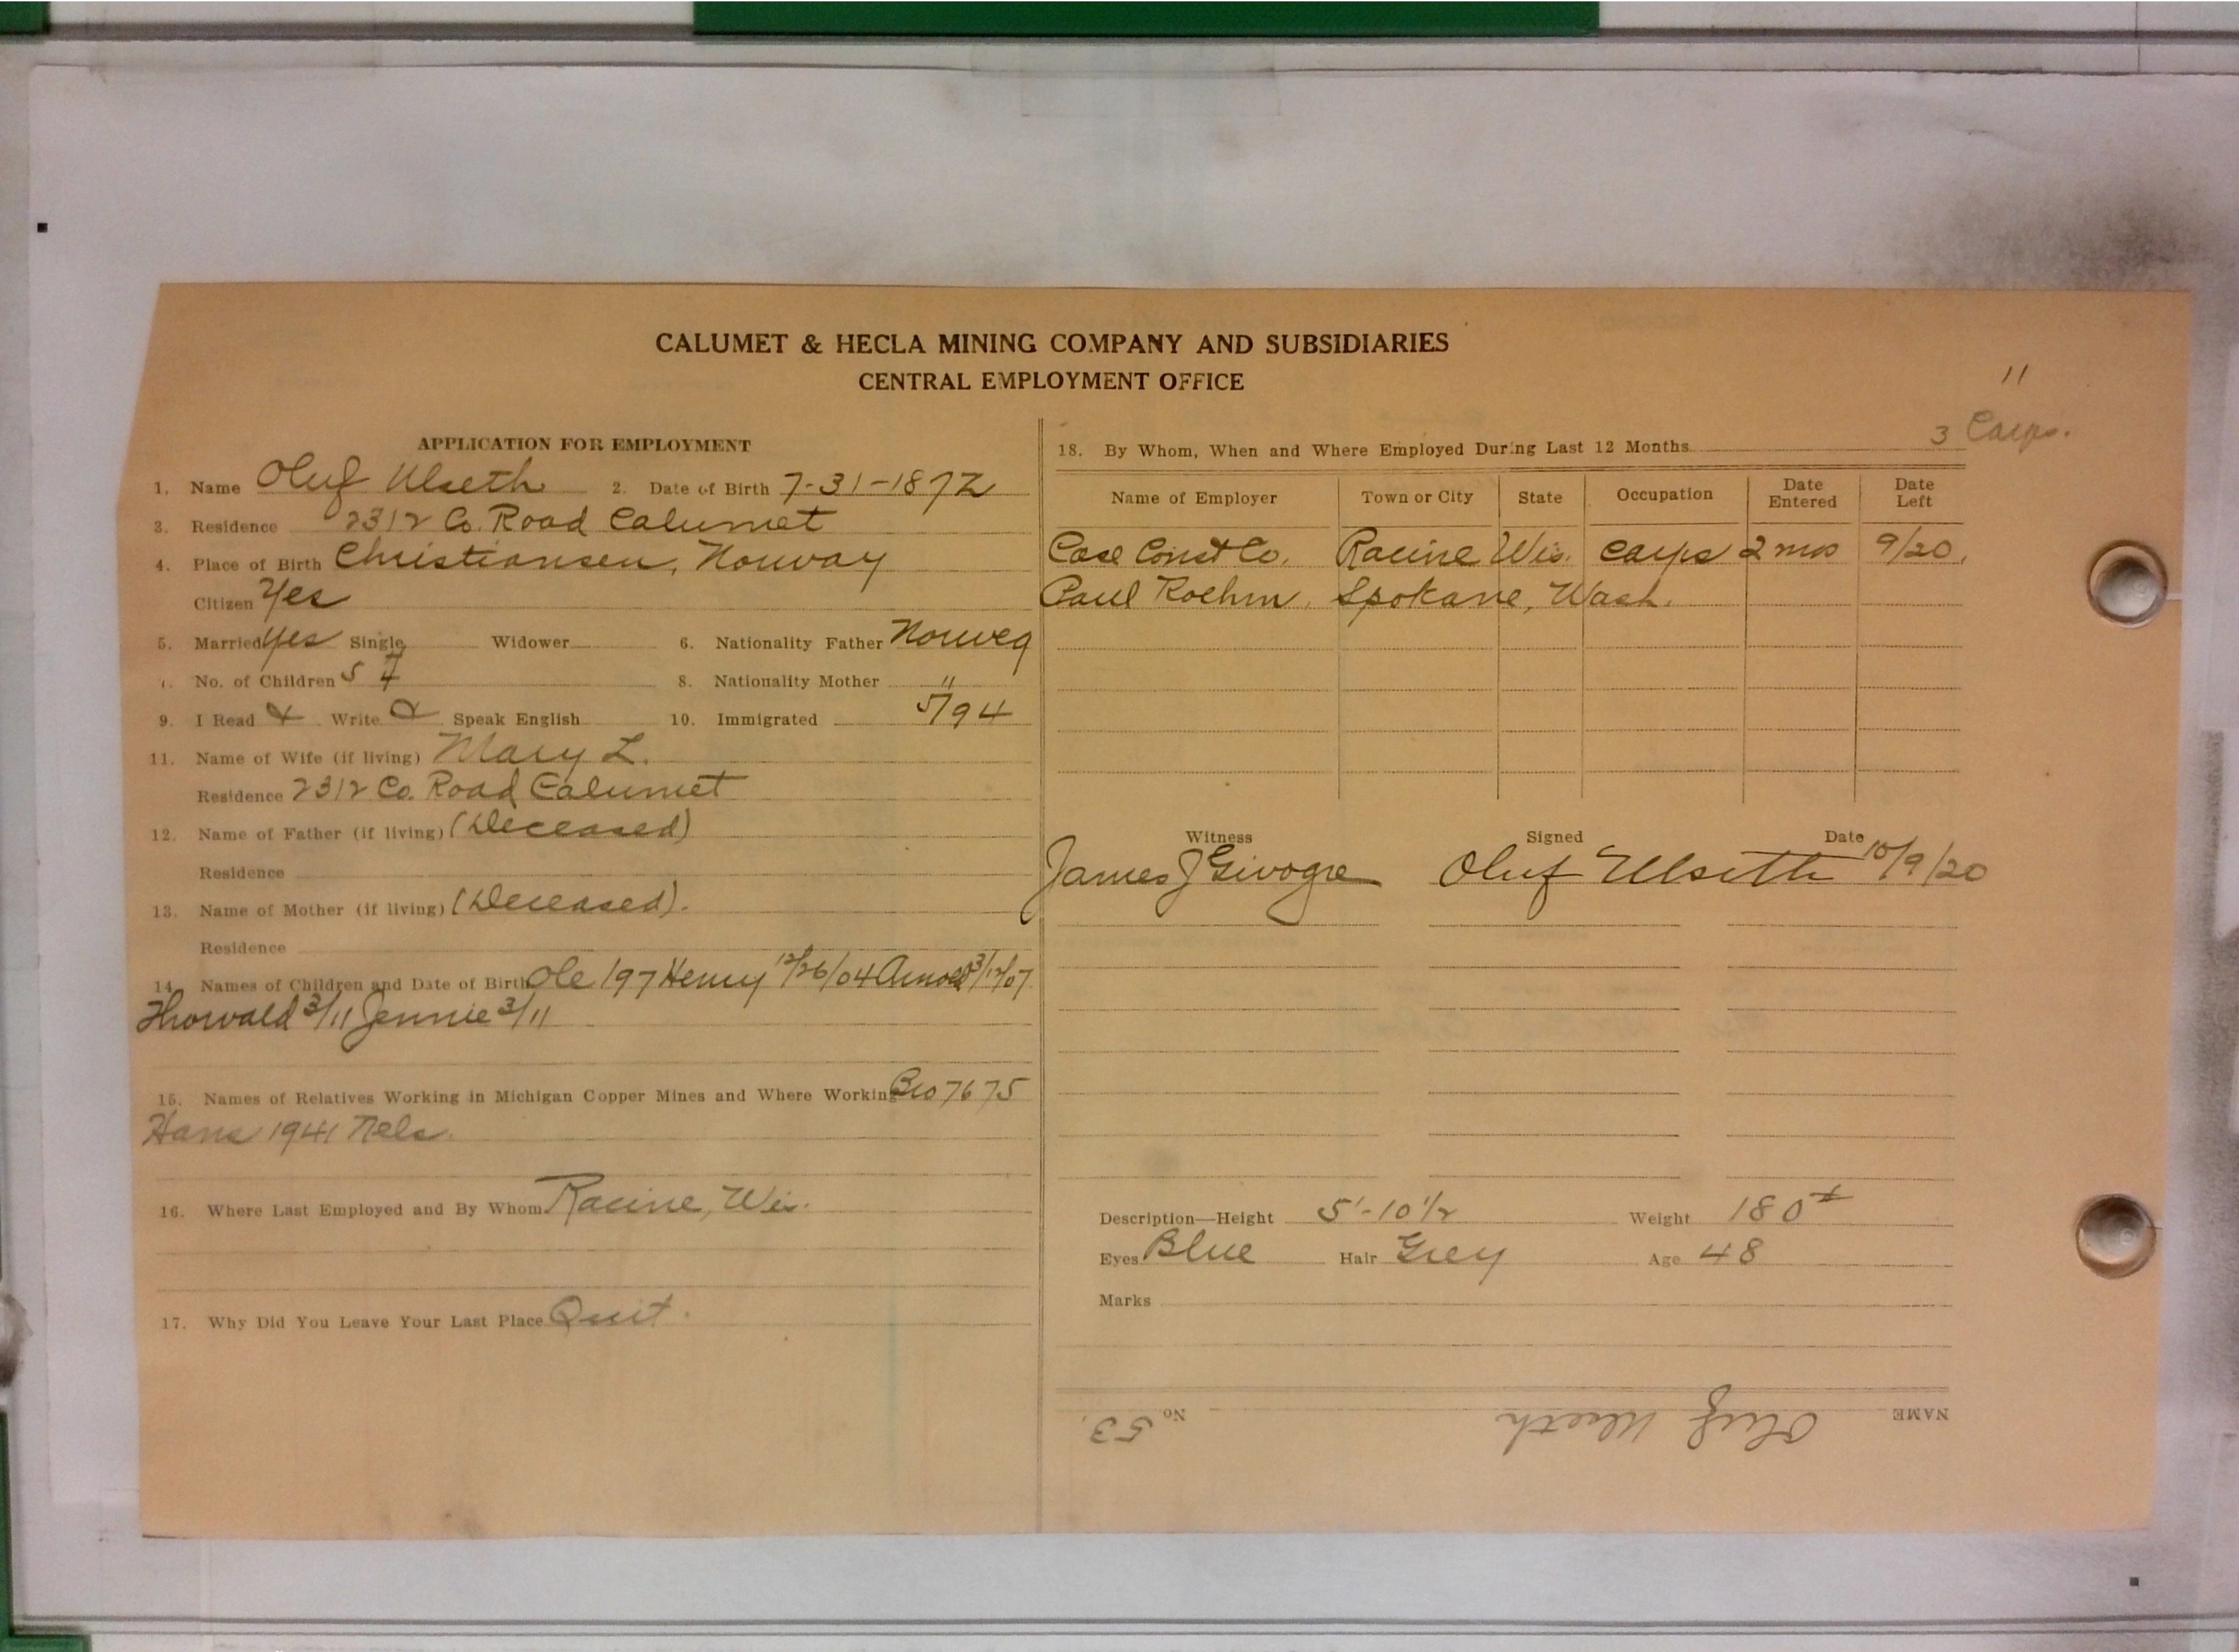 CALUMET & HECLA MINING COMPANY AND SUBSIDIARIES
CENTRAL EMPLOYMENT OFFICE
11
3 Carps.
APPLICATION FOR EMPLOYMENT
1. Name Oluf Ulseth 2. Date of Birth 7-31-1872
3. Residence 2312 Co. Road Calumet
4. Place of Birth Christiansen, Norway
Citizen Yes
5. Married yes Single Widower 6. Nationality Father Norweg
No. of Children 5 8. Nationality Mother "
9. I Read Write Speak English 10. Immigrated 5/94
11. Name of Wife (if living) Mary L.
Residence 2312 Co. Road Calumet
12. Name of Father (if living) (Deceased)
Residence
13. Name of Mother (if living) (Deceased).
Residence
14. Names of Children and Date of Birth Ole 197 Henry 12/26/04 Arnold 3/12/07
Thorvald 3/11 Jennie 3/11
15. Names of Relatives Working in Michigan Copper Mines and Where Working Bro 7675
Hans 1941 Nels.
16. Where Last Employed and By Whom Racine, Wis.
17. Why Did You Leave Your Last Place Quit.
18. By Whom, When and Where Employed During Last 12 Months
Name of Employer Town or City State Occupation Date Entered Date Left
Case Const Co. Racine Wis. carps 2 mos 9/20.
Paul Roehm, Spokane, Wash.
Witness Signed Date
James J Givogre Oluf Ulseth 10/9/20
Description—Height 5'-10 1/2 Weight 180
Eyes Blue Hair Grey Age 48
Marks
NAME Oluf Ulseth No. 53.